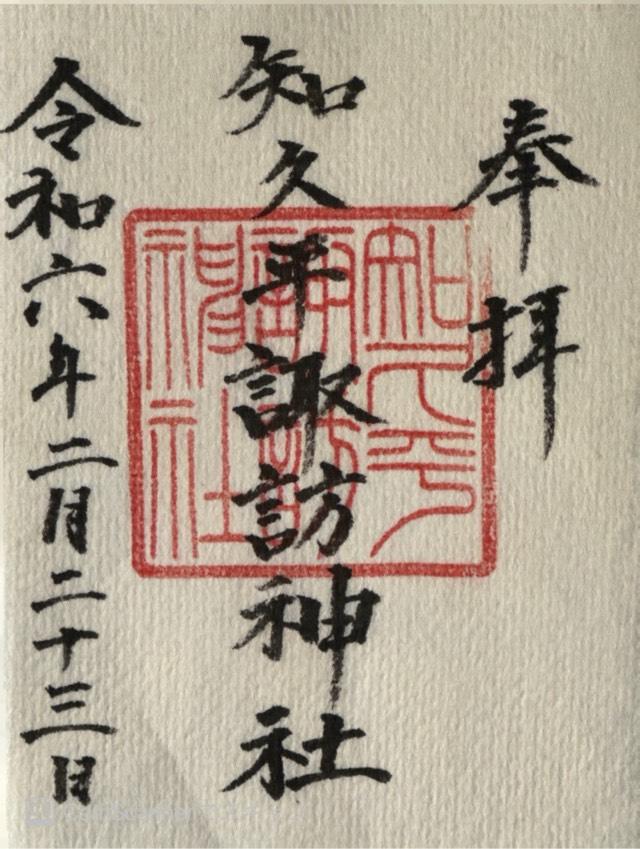 奉拝
知久平諏訪神社
令和六年二月二十三日
知久平
諏訪
神社